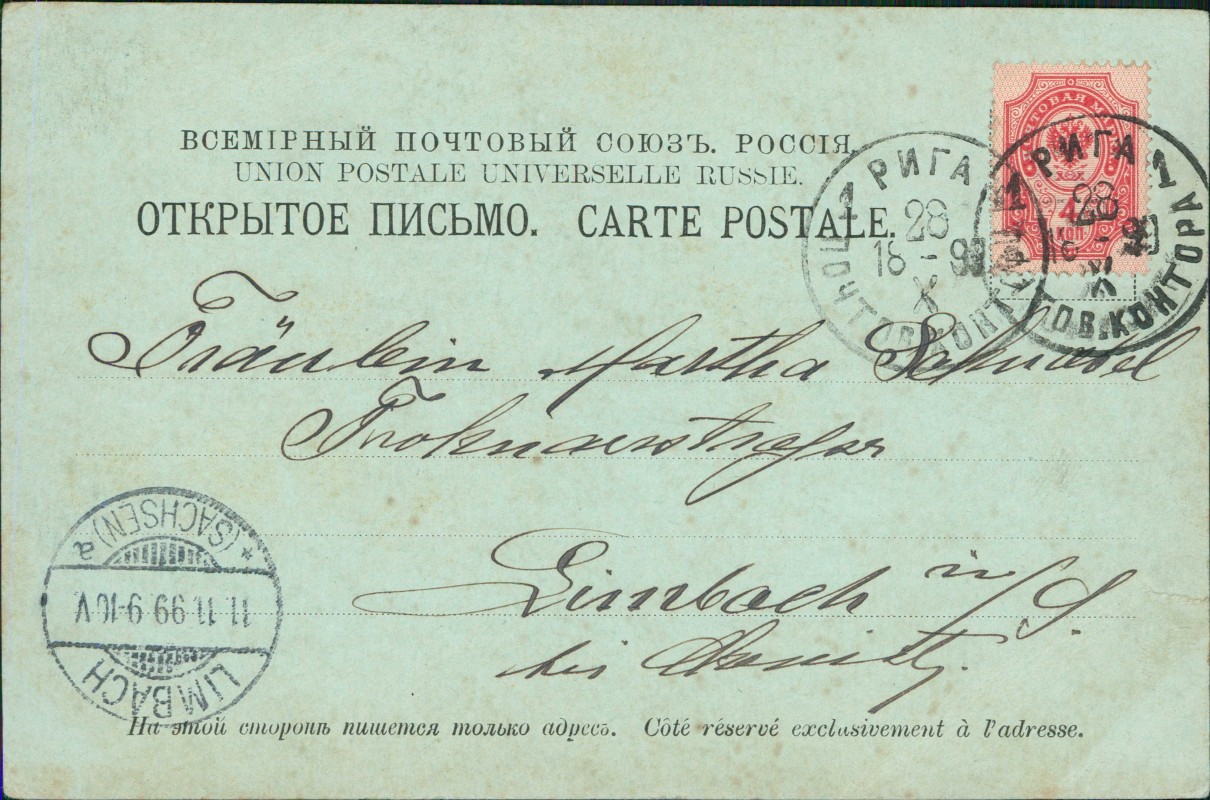 ВСЕМІРНЫЙ ПОЧТОВЫЙ СОЮЗЪ. РОССІЯ.
UNION POSTALE UNIVERSELLE RUSSIE.
ОТКРЫТОЕ ПИСЬМО. CARTE POSTALE.
ПОЧТОВАЯ МАРКА
4
КОП.
1 РИГА 1
28
18-99
X
ПОЧТОВ. КОНТОРА
1 РИГА 1
28
X
ПОЧТОВ. КОНТОРА
Fräulein Martha Schnabel
Limbach i/S.
bei
* (SACHSEN) a
11.11.99 9-10 V
LIMBACH
На этой сторонѣ пишется только адресъ. Côté réservé exclusivement à l'adresse.